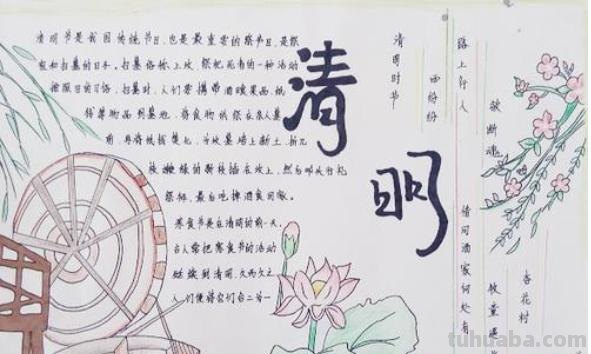 清明节是我国传统节日,也是最重要的祭节日,是祭
祖和扫墓的日子。扫墓俗称上坟,祭祀死者的一种活动
按照旧的习俗,扫墓时,人们要携带酒食果品,纸
钱等物品到墓地,将食物供祭在亲人墓
前,再将纸钱焚化,为坟墓培上新土,折几
枝嫩绿的新枝插在坟上,然后叩头行礼
祭拜,最后吃掉酒食回家。
寒食节是在清明的前一天,
古人常把寒食节的活动
延续到清明,久而久之
人们便将它们合二为一
清
明
清明时节
雨纷纷
路上行人
欲断魂
借问酒家何处有
牧童遥
杏花村
tuhuaba.com